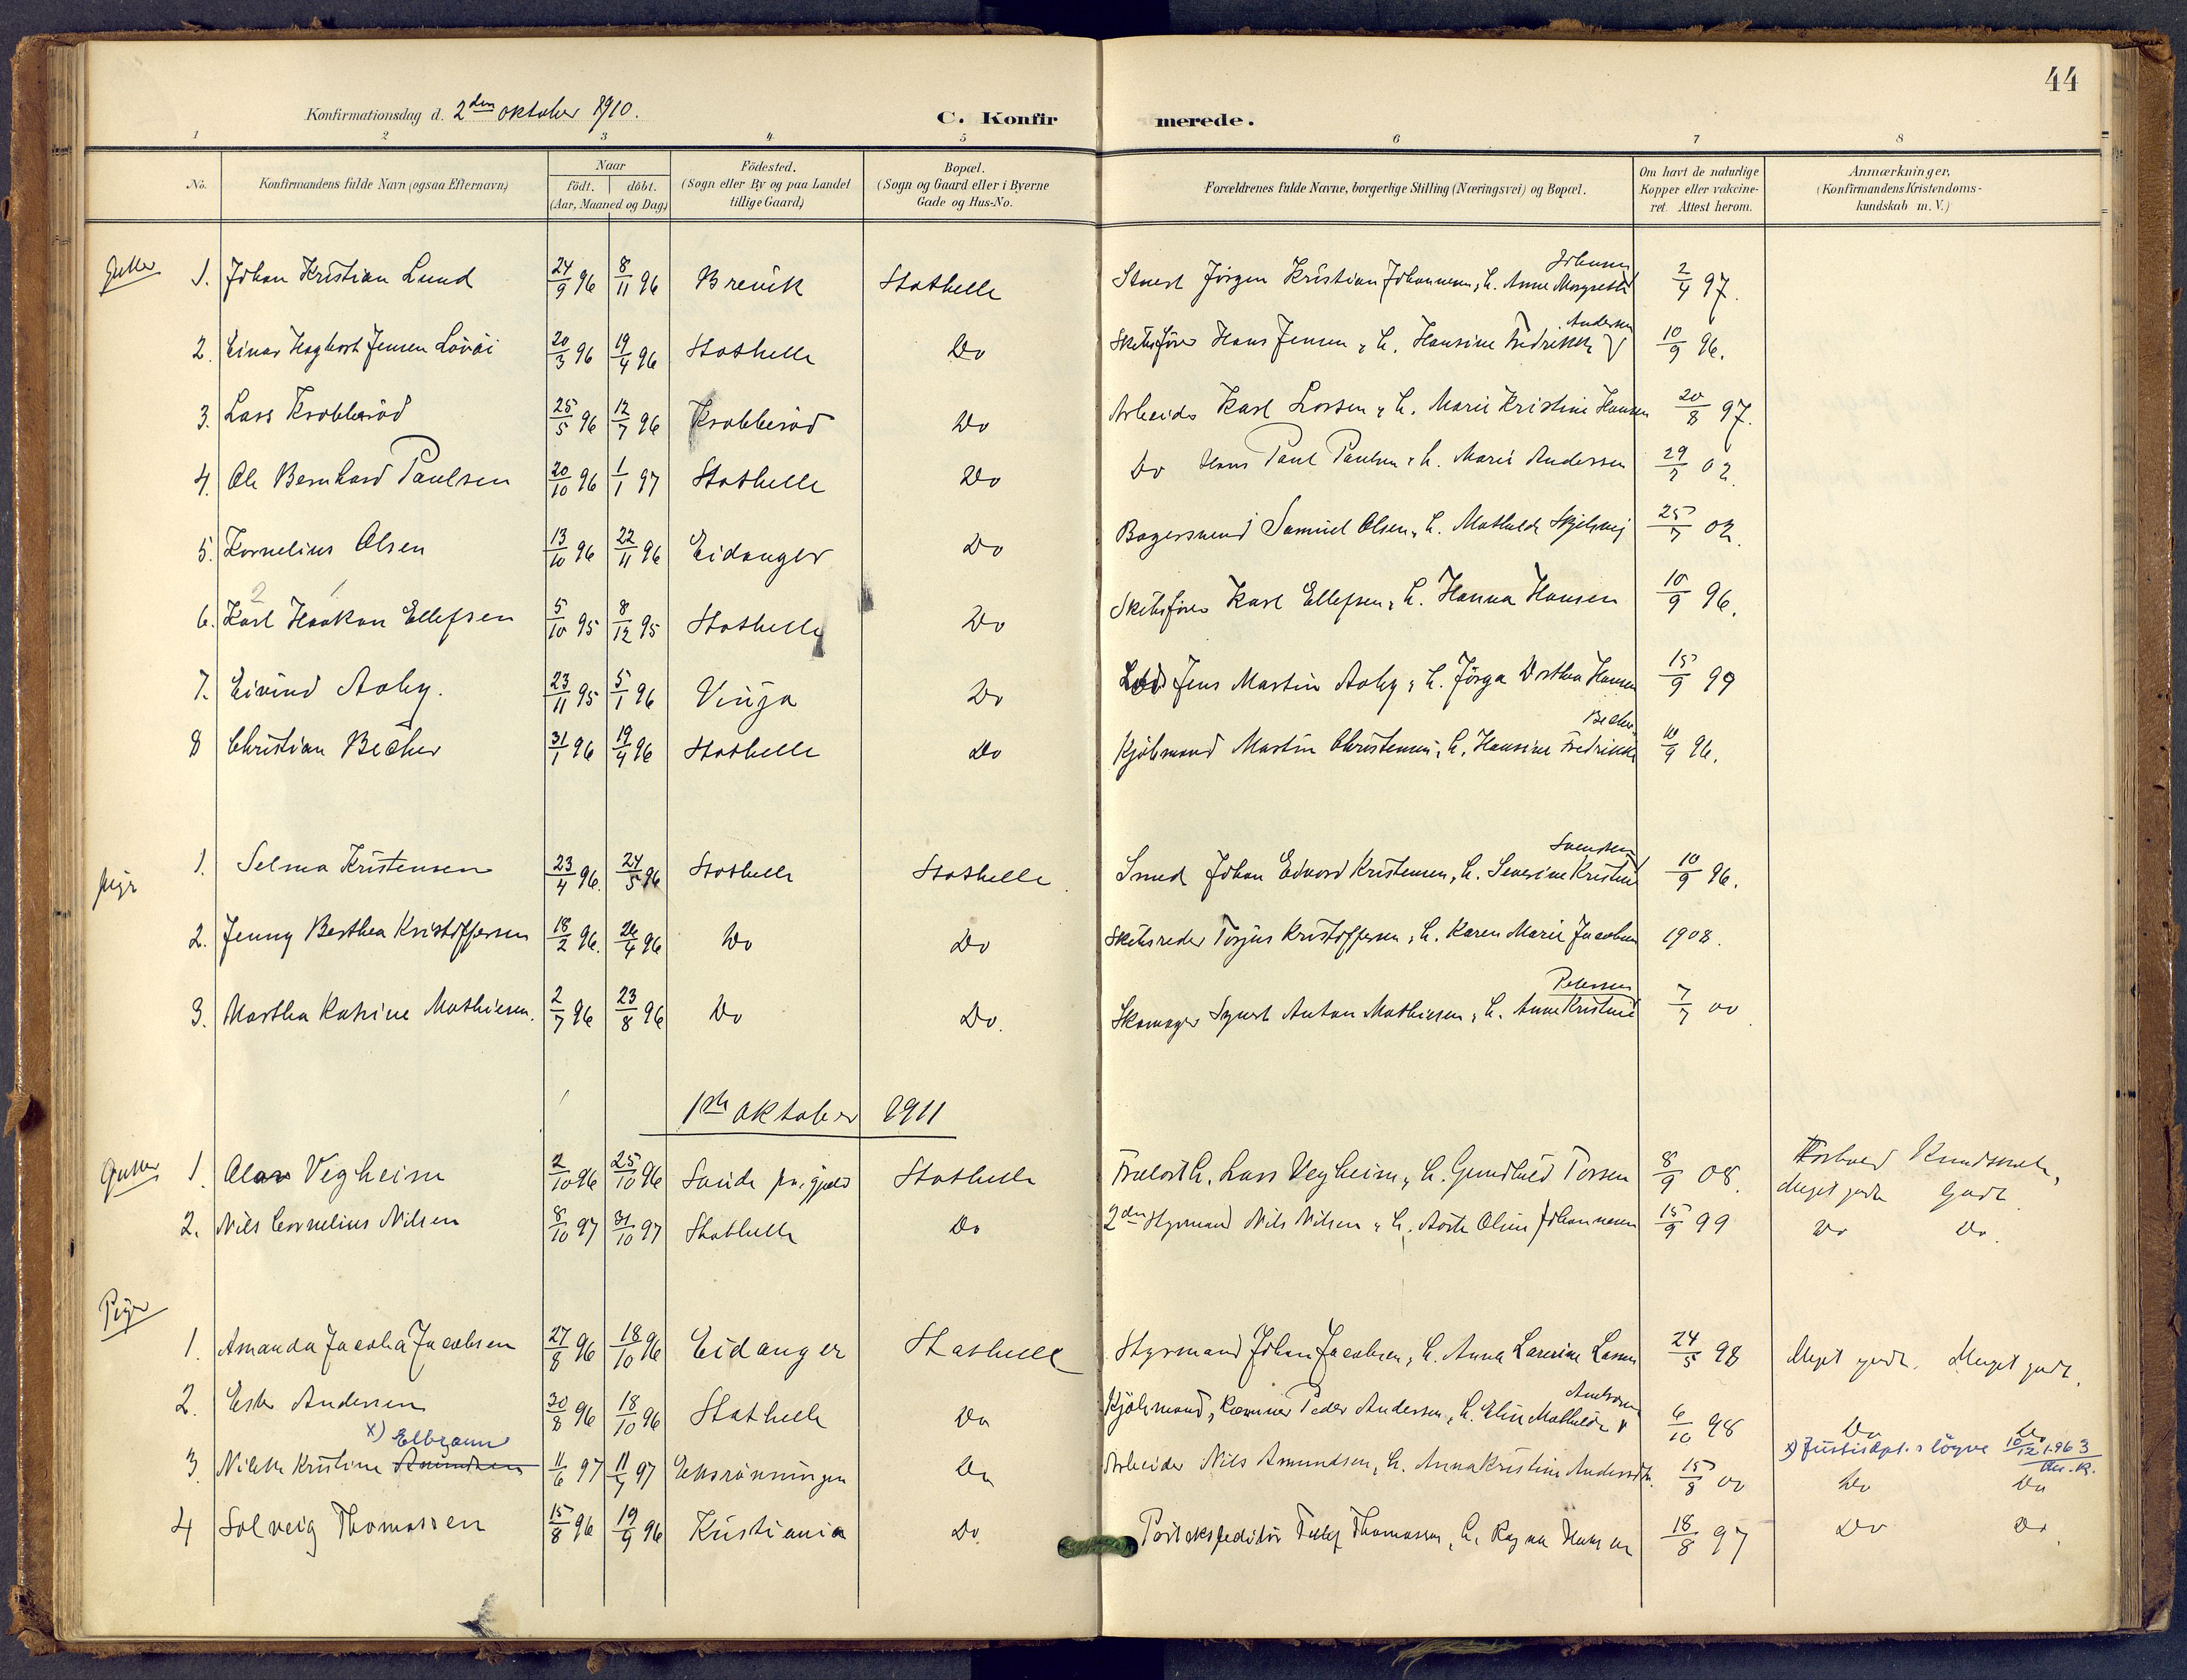 44
Konfirmationsdag d. 2den oktober 1910.
C. Konfirmerede.
1 2 3 4 5 6 7 8
No.
Konfirmandens fulde Navn (ogsaa Efternavn)
Naar
födt. döbt.
(Aar, Maaned og Dag)
Födested.
(Sogn eller By og paa Landet
tillige Gaard)
Bopæl.
(Sogn og Gaard eller i Byerne
Gade og Hus-No.
Forældrenes fulde Navne, borgerlige Stilling (Næringsvei) og Bopæl.
Om havt de naturlige
Kopper eller vakcine-
ret Attest herom.
Anmærkninger,
(Konfirmandens Kristendoms-
kundskab m.V.)
Gutter
1. Johan Kristian Lund 24/9 96 8/11 96 Brevik Stathelle Jörgen Kristian Johannesen, h. Anne Margrethe Johnsen 2/4 97.
2. Einar Hagbart Jensen Lövöi 20/3 96 19/4 96 Stathelle Do Skibsförer Hans Jensen, h. Hansine Fredrikke Andersen 10/9 96.
3. Lars Krabberöd 25/5 96 12/7 96 Krabberöd Do Arbeider Karl Larsen, h. Marie Kristine Hansen 20/8 97.
4. Ole Bernhard Paulsen 20/10 96 1/1 97 Stathelle Do Do Hans Paul Paulsen, h. Marie Andersen 29/7 02.
5. Kornelius Olsen 13/10 96 22/11 96 Eidanger Do Bagersvend Samuel Olsen, h. Mathilde 25/7 02.
6. Karl Haakon Ellefsen 5/10 95 8/12 95 Stathelle Do Skibsförer Karl Ellefsen, h. Hanna Hansen 10/9 96.
7. Eivind Aaby. 23/11 95 5/1 96 Vinja Do Lods Jens Martin Aaby, h. Jörga Dorthea Hansen 15/9 99
8 Christian Becher 31/1 96 19/4 96 Stathelle Do Kjöbmand Martin Christensen, h. Hansine Fredrikke Becher 10/9 96.
Piger
1. Selma Kristensen 23/4 96. 24/5 96 Stathelle Stathelle. Smed Johan Edvard Kristensen, h. Severine Kristine Svendsen 10/9 96.
2. Jenny Berthea Kristoffersen 18/2 96. 26/4 96 Do Do Skibsreder Torjus Kristoffersen, h. Karen Marie Jacobsen 1908.
3. Martha Katrine Mathiesen. 2/7 96 23/8 96 Do Do. Skomager Syvert Anton Mathiesen, h. Anne Kristine Petersen 7/7 00
1ste oktober 1911
Gutter
1. Olav Vegheim 2/10 96 25/10 96 Saude præstegjeld Stathelle Lars Vegheim, h. Gundhild Torsen 8/9 08. Forhold Kundskab,
Meget godt Godt
2. Nils Cornelius Nilsen 8/10 97 31/10 97 Stathelle Do 2den Styrmand Nils Nilsen, h. Aaste Oline Johannesen 15/9 99 Do Do.
Piger
1. Amanda Jacoba Jacobsen 27/8 96 18/10 96 Eidanger Stathelle Styrmand Johan Jacobsen, h. Anna Laverine Larsen 24/5 98 Meget godt. Meget godt.
2. Ester Andersen 30/8 96 18/10 96 Stathelle Do Kjöbmand, Kæmner Peder Andersen, h. Elise Mathilde 6/10 98 Do Do
x) Elbrann
3. Nilette Kristine Aamundsen 11/6 97 11/7 97 Do Arbeider Nils Amundsen, h. Anna Kristine Andersen. 15/8 00 Do Do
x) Justisdept.s löyve 10/12 1963
4 Solveig Thomassen 15/8 96 19/9 96 Kristiania Do. Postekspeditör Tellef Thomassen, h. Ragna Hansen 18/8 97 Do Do